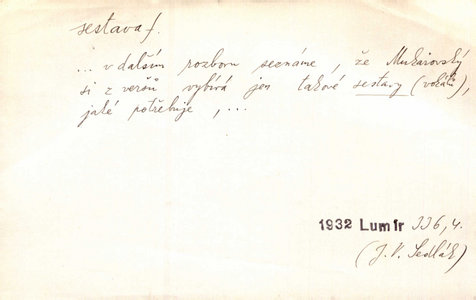 sestava f.
... v dalším rozboru seznáme, že Mukařovský
si z veršů vybírá jen takové sestavy (vokálů),
jaké potřebuje, ...
1932 Lumír 336, 4.
(J. V. Sedlák)